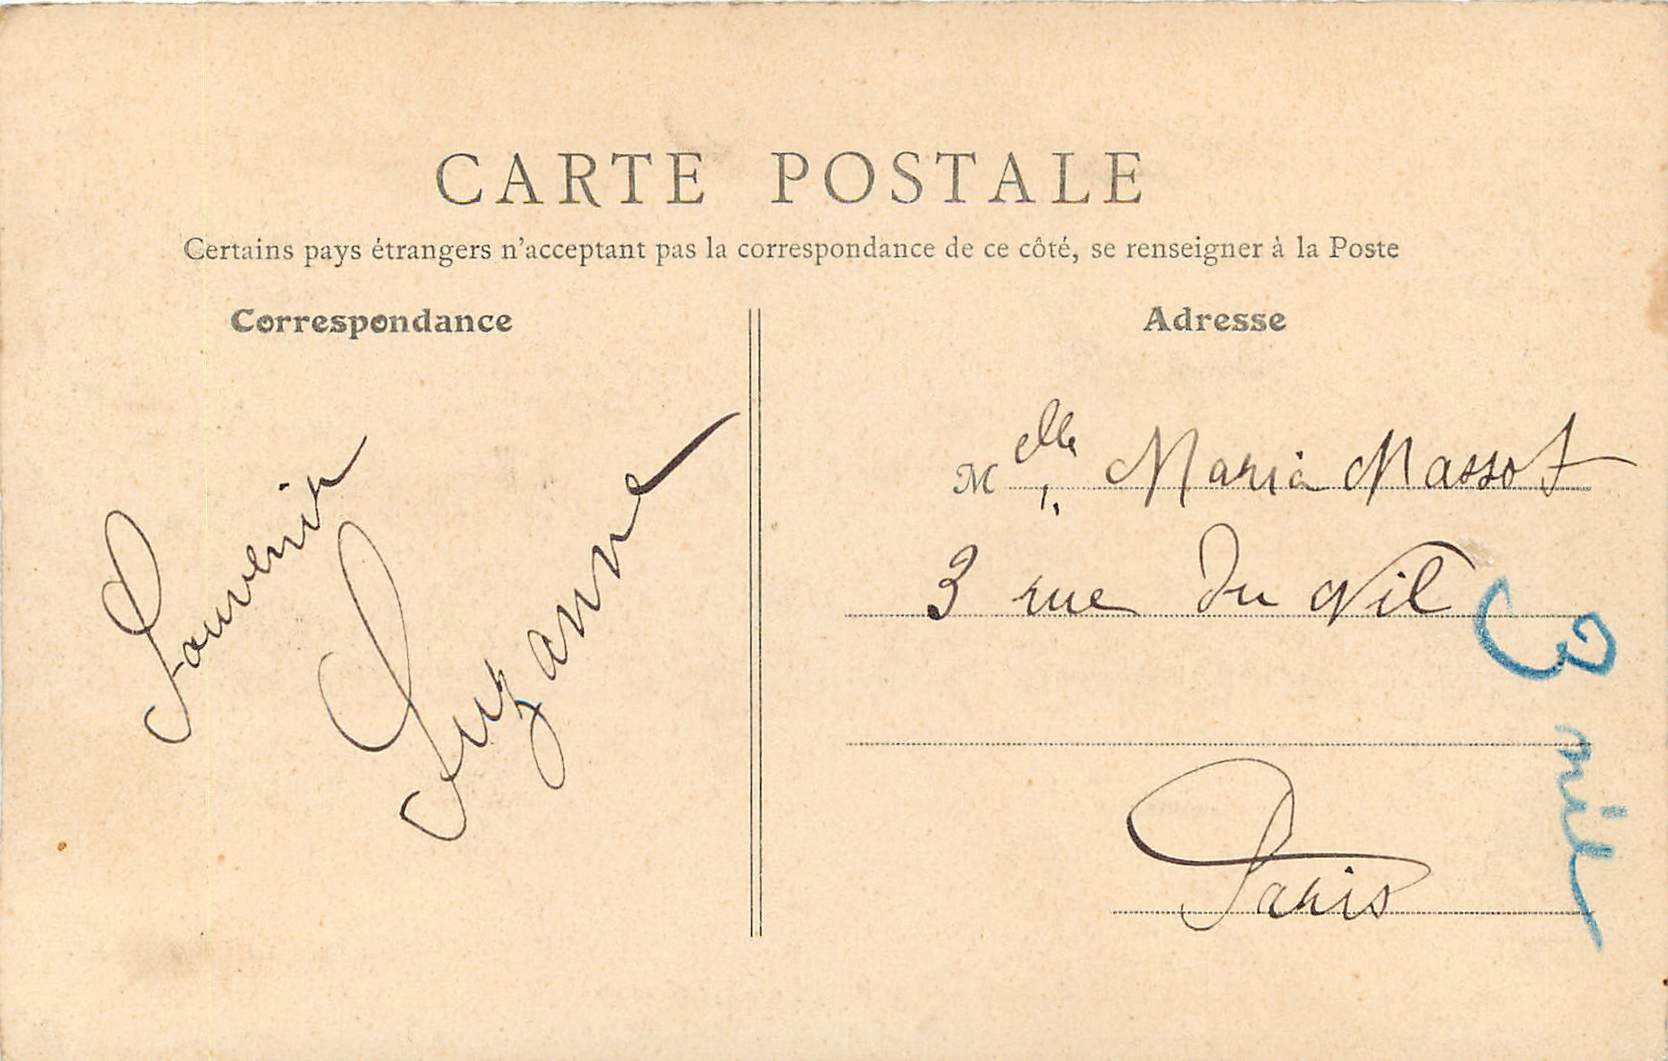 CARTE POSTALE
Certains pays étrangers n'acceptant pas la correspondance de ce côté, se renseigner à la Poste
Correspondance
Souvenir
Suzanne
Adresse
Melle Maria Massot
3 rue du Nil
Paris
3 nil